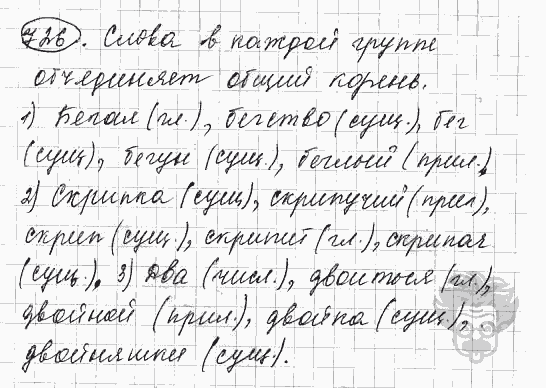 726. Слова в каждой группе
объединяет общий корень.
1) Бегал (гл.), бегство (сущ.), бег
(сущ), бегун (сущ.), беглый (прил.).
2) Скрипка (сущ), скрипучий (прил),
скрип (сущ.), скрипит (гл.), скрипач
(сущ.). 3) Два (числ.), двоиться (гл.),
двойной (прил.), двойка (сущ.),
двойняшки (сущ.).